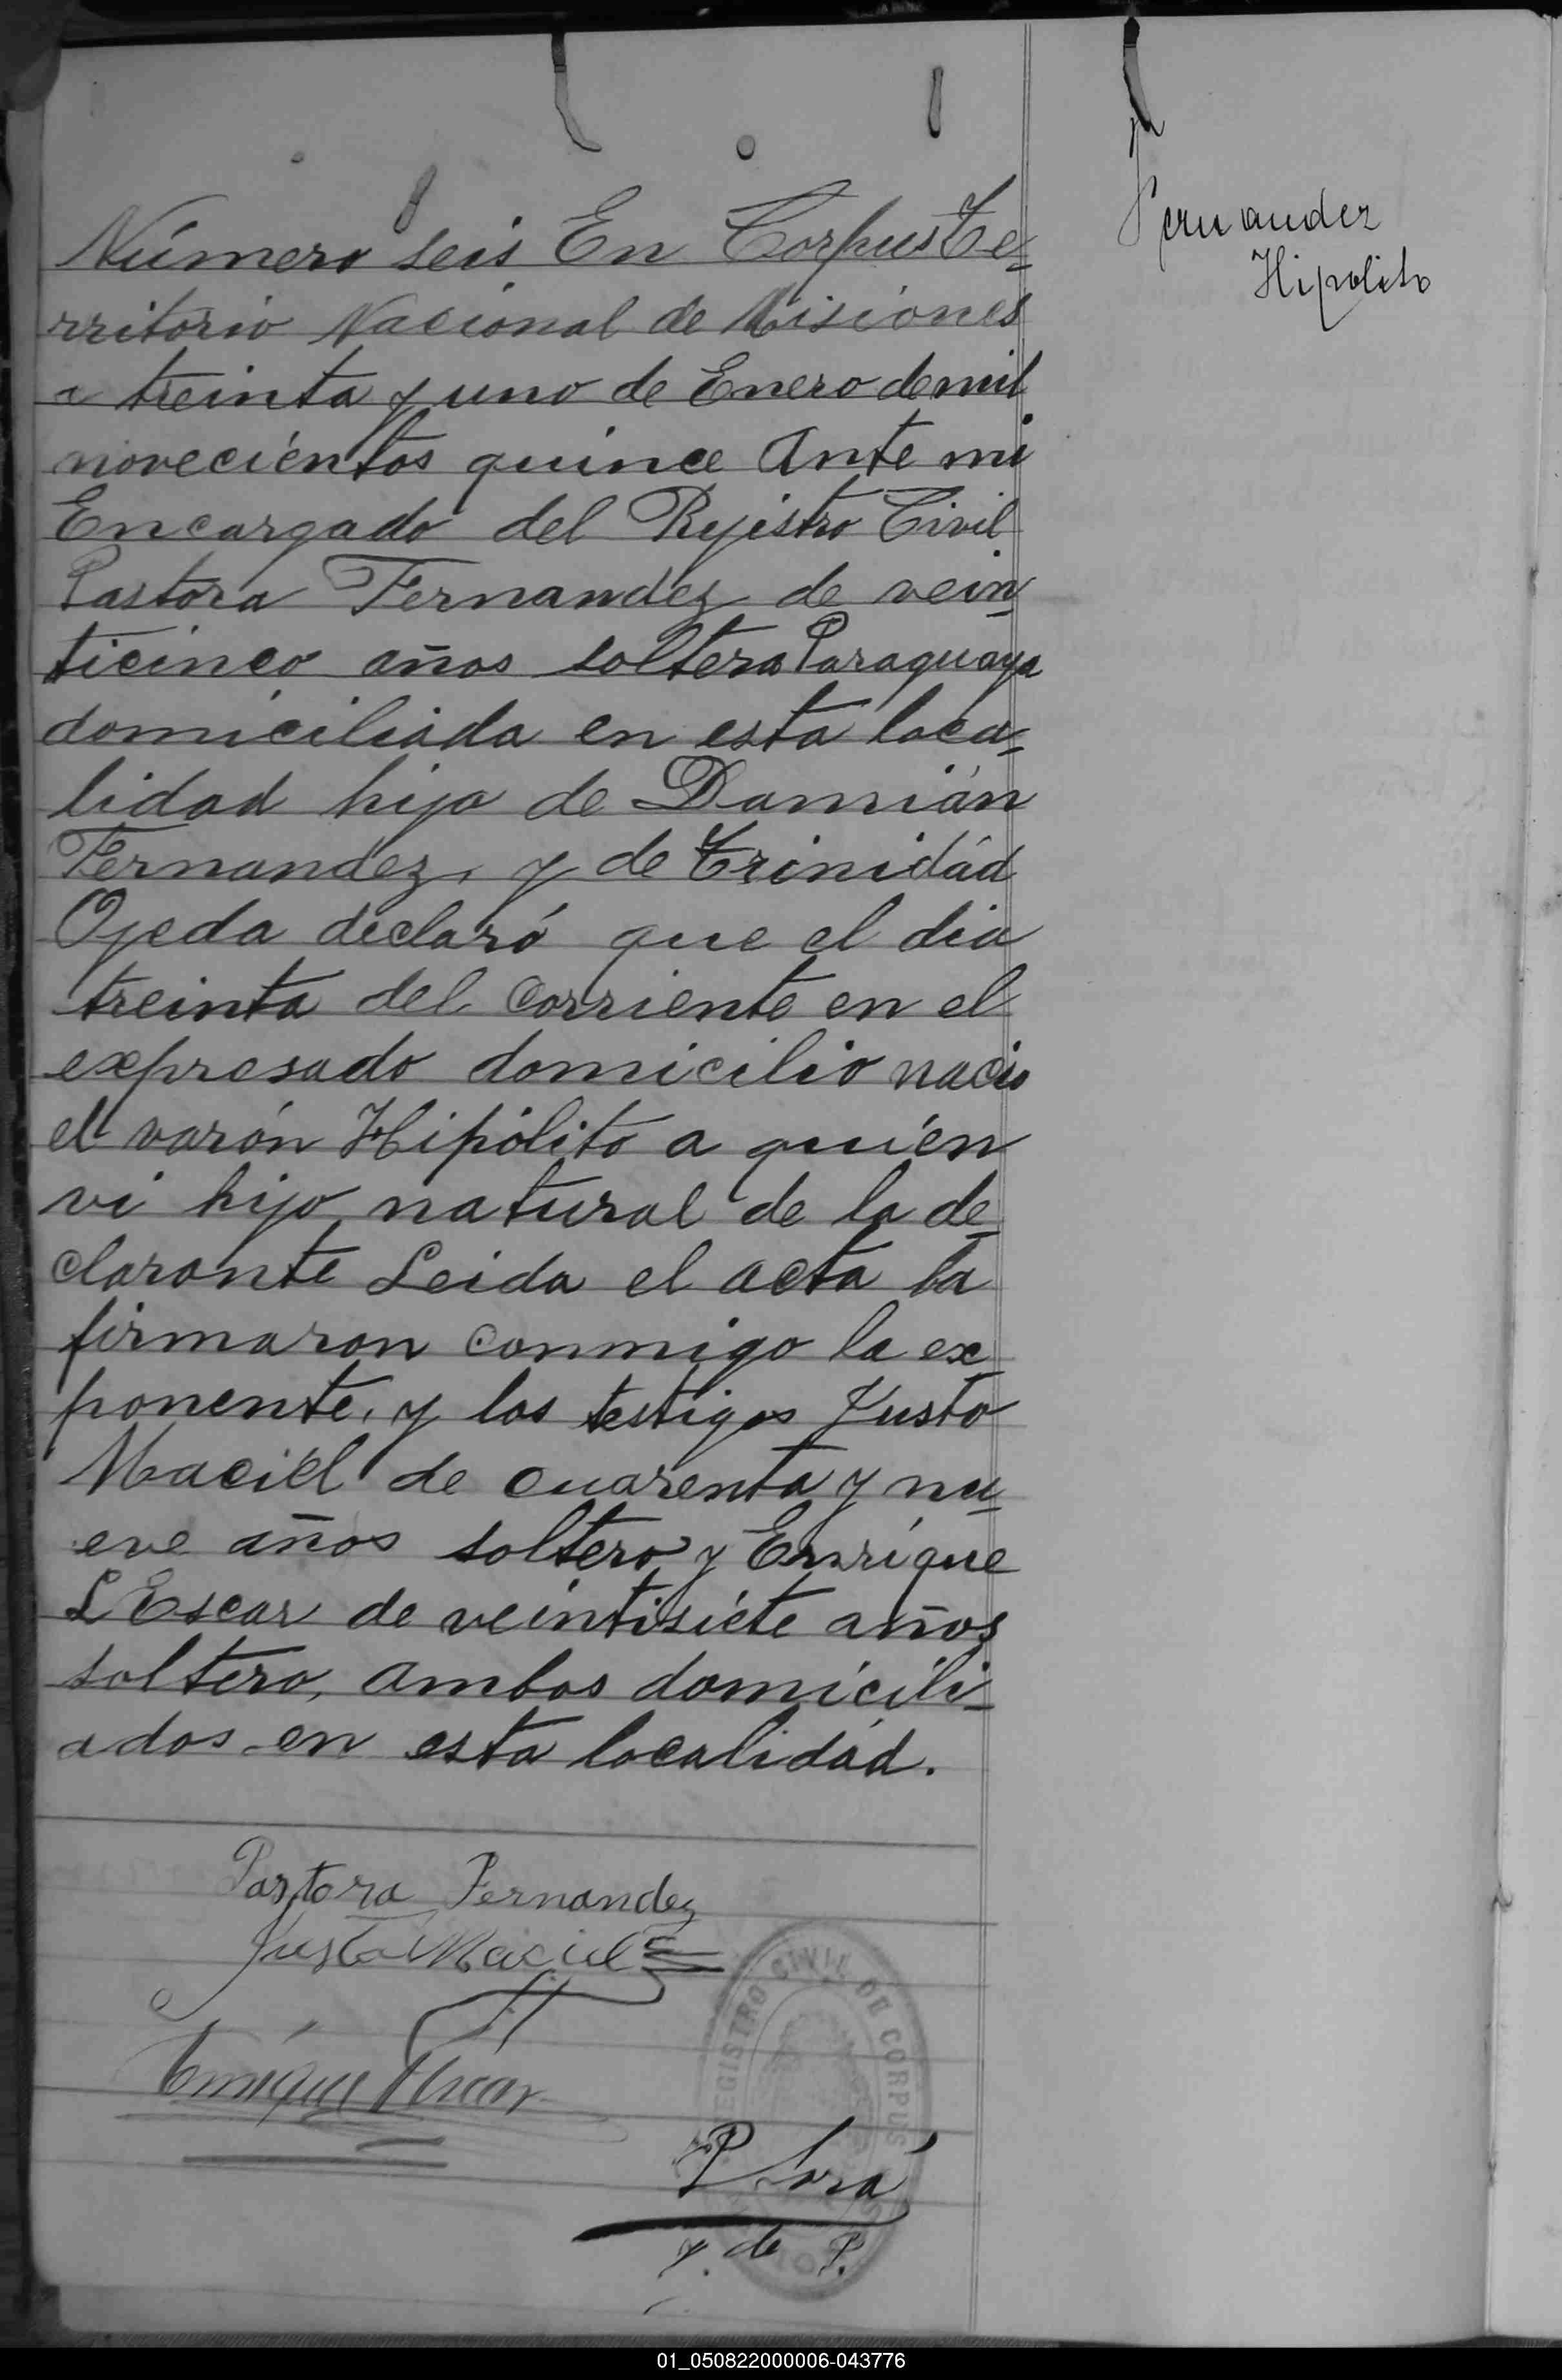 Número seis En Corpus Te-
rritorio Nacional de Misiones
a treinta y uno de Enero de mil
novecientos quince Ante mi
Encargado del Rejistro Civil
Pastora Fernandez de vein-
ticinco años soltera Paraguaya
domiciliada en esta loca-
lidad hija de Damián
Fernandez, y de Trinidád
Ojeda declaró que el dia
treinta del corriente en el
expresado domicilio nacio
el varón Hipólito a quién
vi hijo natural de la de-
clarante Leida el acta la
firmaron conmigo la ex-
ponente, y los testigos Justo
Maciél de cuarenta y nu-
eve años soltero y Enrrique
L Escar de veintisiete años
soltero, ambos domicili-
ados en esta localidád.
Pastora Fernandez
Justo Maciel
Enrique Escar
REGISTRO CIVIL DE CORPUS
J. de P.
Fernandez
Hipolito
01_050822000006-043776